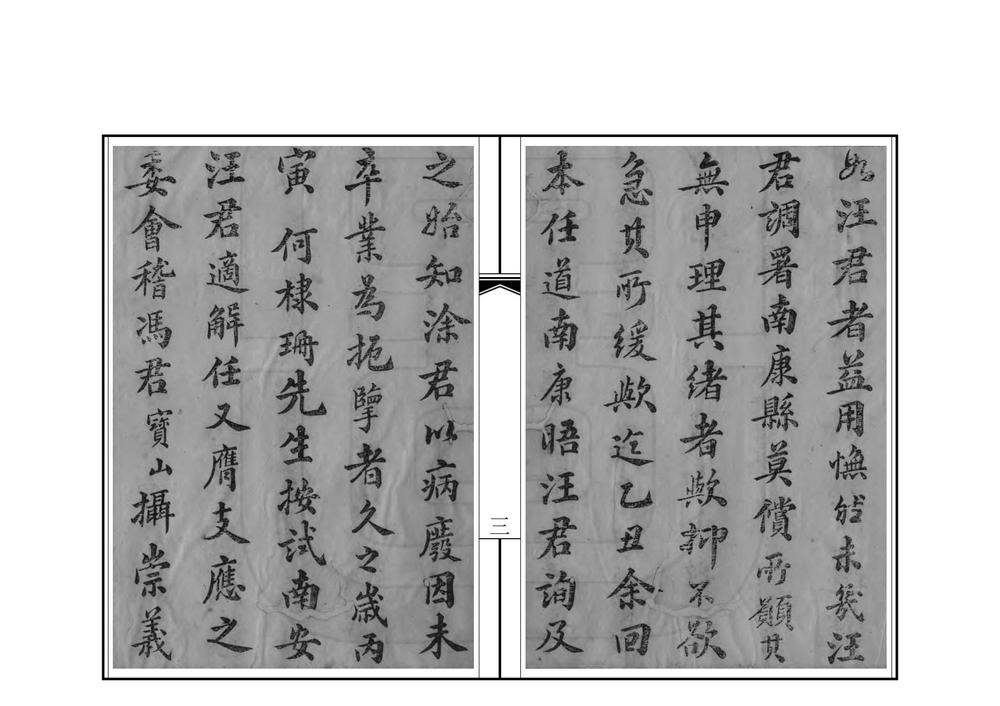 如汪君者益用憮然未幾汪
君調署南康縣莫償所願其
無申理其緒者歟抑不欲
急其所緩歟迄乙丑余回
本任道南康晤汪君詢及
三
之始知涂君以病廢因未
卒業為扼擥者久之歲丙
寅何棣珊先生按試南安
汪君適解任又膺支應之
委會稽馮君寶山攝崇義